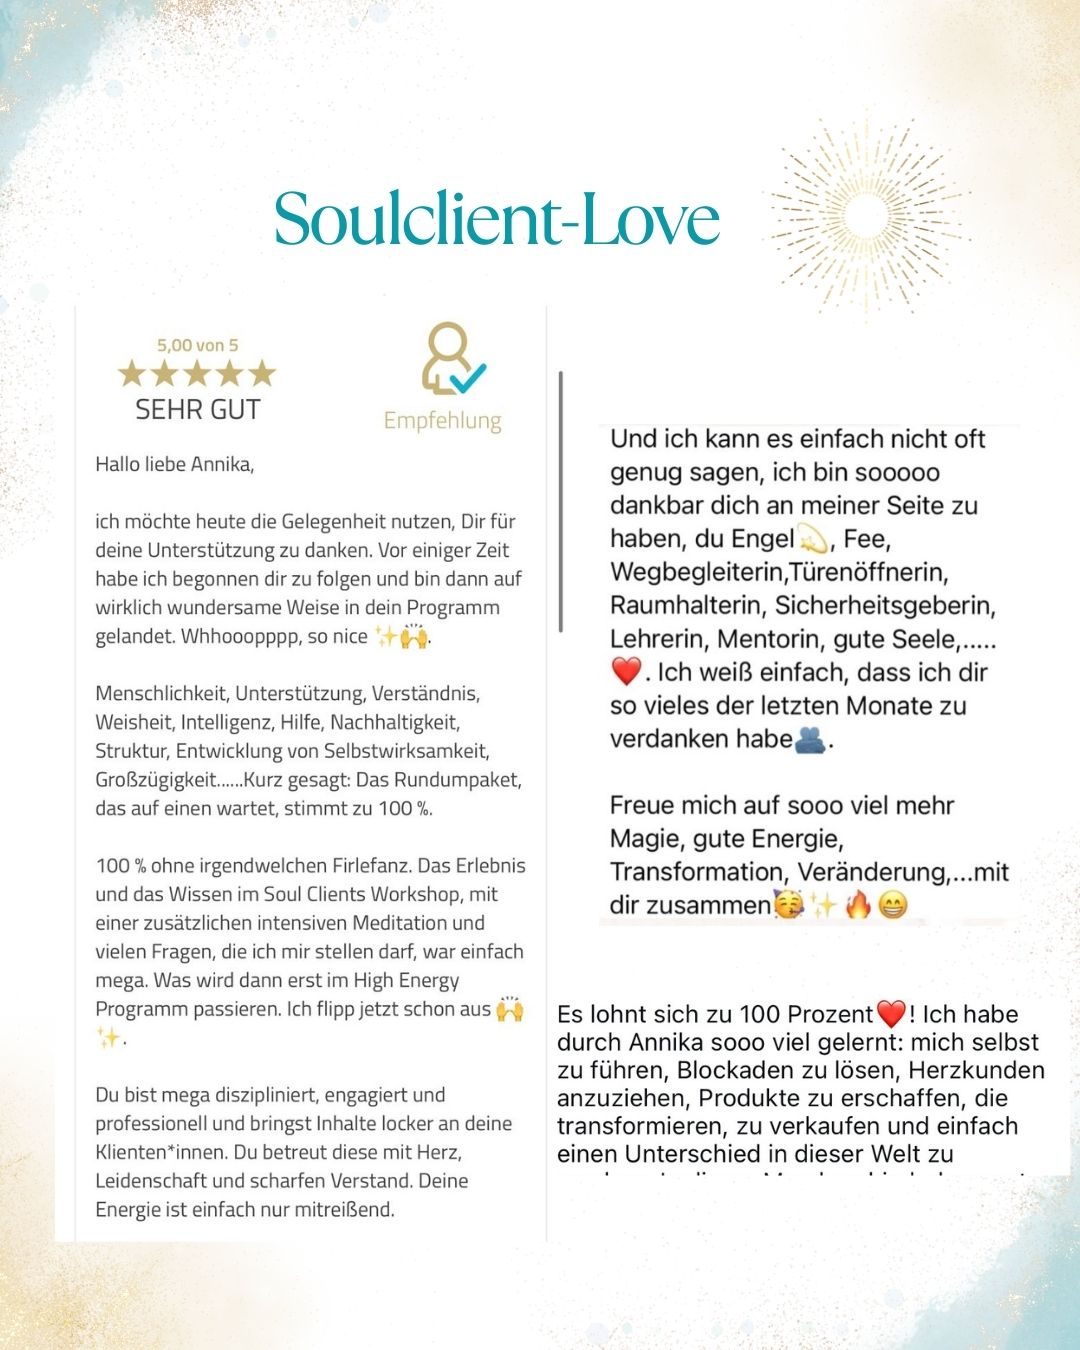 Soulclient-Love
5,00 von 5
SEHR GUT
Empfehlung
Hallo liebe Annika,
ich möchte heute die Gelegenheit nutzen, Dir für
deine Unterstützung zu danken. Vor einiger Zeit
habe ich begonnen dir zu folgen und bin dann auf
wirklich wundersame Weise in dein Programm
gelandet. Whhooopppp, so nice ✨🙌.
Menschlichkeit, Unterstützung, Verständnis,
Weisheit, Intelligenz, Hilfe, Nachhaltigkeit,
Struktur, Entwicklung von Selbstwirksamkeit,
Großzügigkeit......Kurz gesagt: Das Rundumpaket,
das auf einen wartet, stimmt zu 100 %.
100 % ohne irgendwelchen Firlefanz. Das Erlebnis
und das Wissen im Soul Clients Workshop, mit
einer zusätzlichen intensiven Meditation und
vielen Fragen, die ich mir stellen darf, war einfach
mega. Was wird dann erst im High Energy
Programm passieren. Ich flipp jetzt schon aus 🙌
✨.
Du bist mega diszipliniert, engagiert und
professionell und bringst Inhalte locker an deine
Klienten*innen. Du betreut diese mit Herz,
Leidenschaft und scharfen Verstand. Deine
Energie ist einfach nur mitreißend.
Und ich kann es einfach nicht oft
genug sagen, ich bin sooooo
dankbar dich an meiner Seite zu
haben, du Engel💫, Fee,
Wegbegleiterin,Türenöffnerin,
Raumhalterin, Sicherheitsgeberin,
Lehrerin, Mentorin, gute Seele,.....
❤️. Ich weiß einfach, dass ich dir
so vieles der letzten Monate zu
verdanken habe🫂.
Freue mich auf sooo viel mehr
Magie, gute Energie,
Transformation, Veränderung,...mit
dir zusammen🥳✨🔥😁
Es lohnt sich zu 100 Prozent❤️! Ich habe
durch Annika sooo viel gelernt: mich selbst
zu führen, Blockaden zu lösen, Herzkunden
anzuziehen, Produkte zu erschaffen, die
transformieren, zu verkaufen und einfach
einen Unterschied in dieser Welt zu